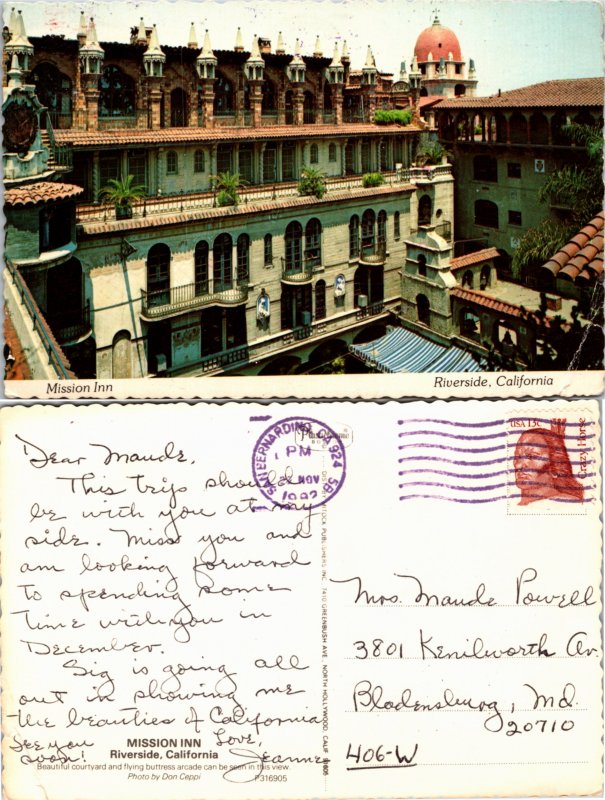 Mission Inn
Riverside, California
Dear Maude,
This trip should
be with you at my
side. Miss you and
am looking forward
to spending some
time with you in
December.
Sig is going all
out in showing me
the beauties of California
See you
soon!
Love,
Jeanne
MISSION INN
Riverside, California
Beautiful courtyard and flying buttress arcade can be seen in this view.
Photo by Don Ceppi
P316905
SAN BERNARDINO, CA 924
PM
NOV
USA 13c
Crazy Horse
PUBLISHERS INC. 7410 GREENBUSH AVE. NORTH HOLLYWOOD CALIF.
Mrs. Maude Powell
3801 Kenilworth Av.
Bladensburg, Md.
20710
406-W